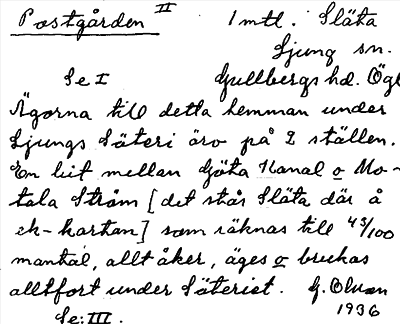 Postgården II 1 mtl. Släta
Ljung sn.
Se I Gullbergs hd. Ögl
Ägorna till detta hemman under
Ljungs Säteri äro på 2 ställen.
En bit mellan Göta Kanal o Mo-
tala Ström [det står Släta där å
ek-kartan] som räknas till 43/100
mantal, allt åker, äges o brukas
alltfort under Säteriet. G. Olsson
Se: III. 1936